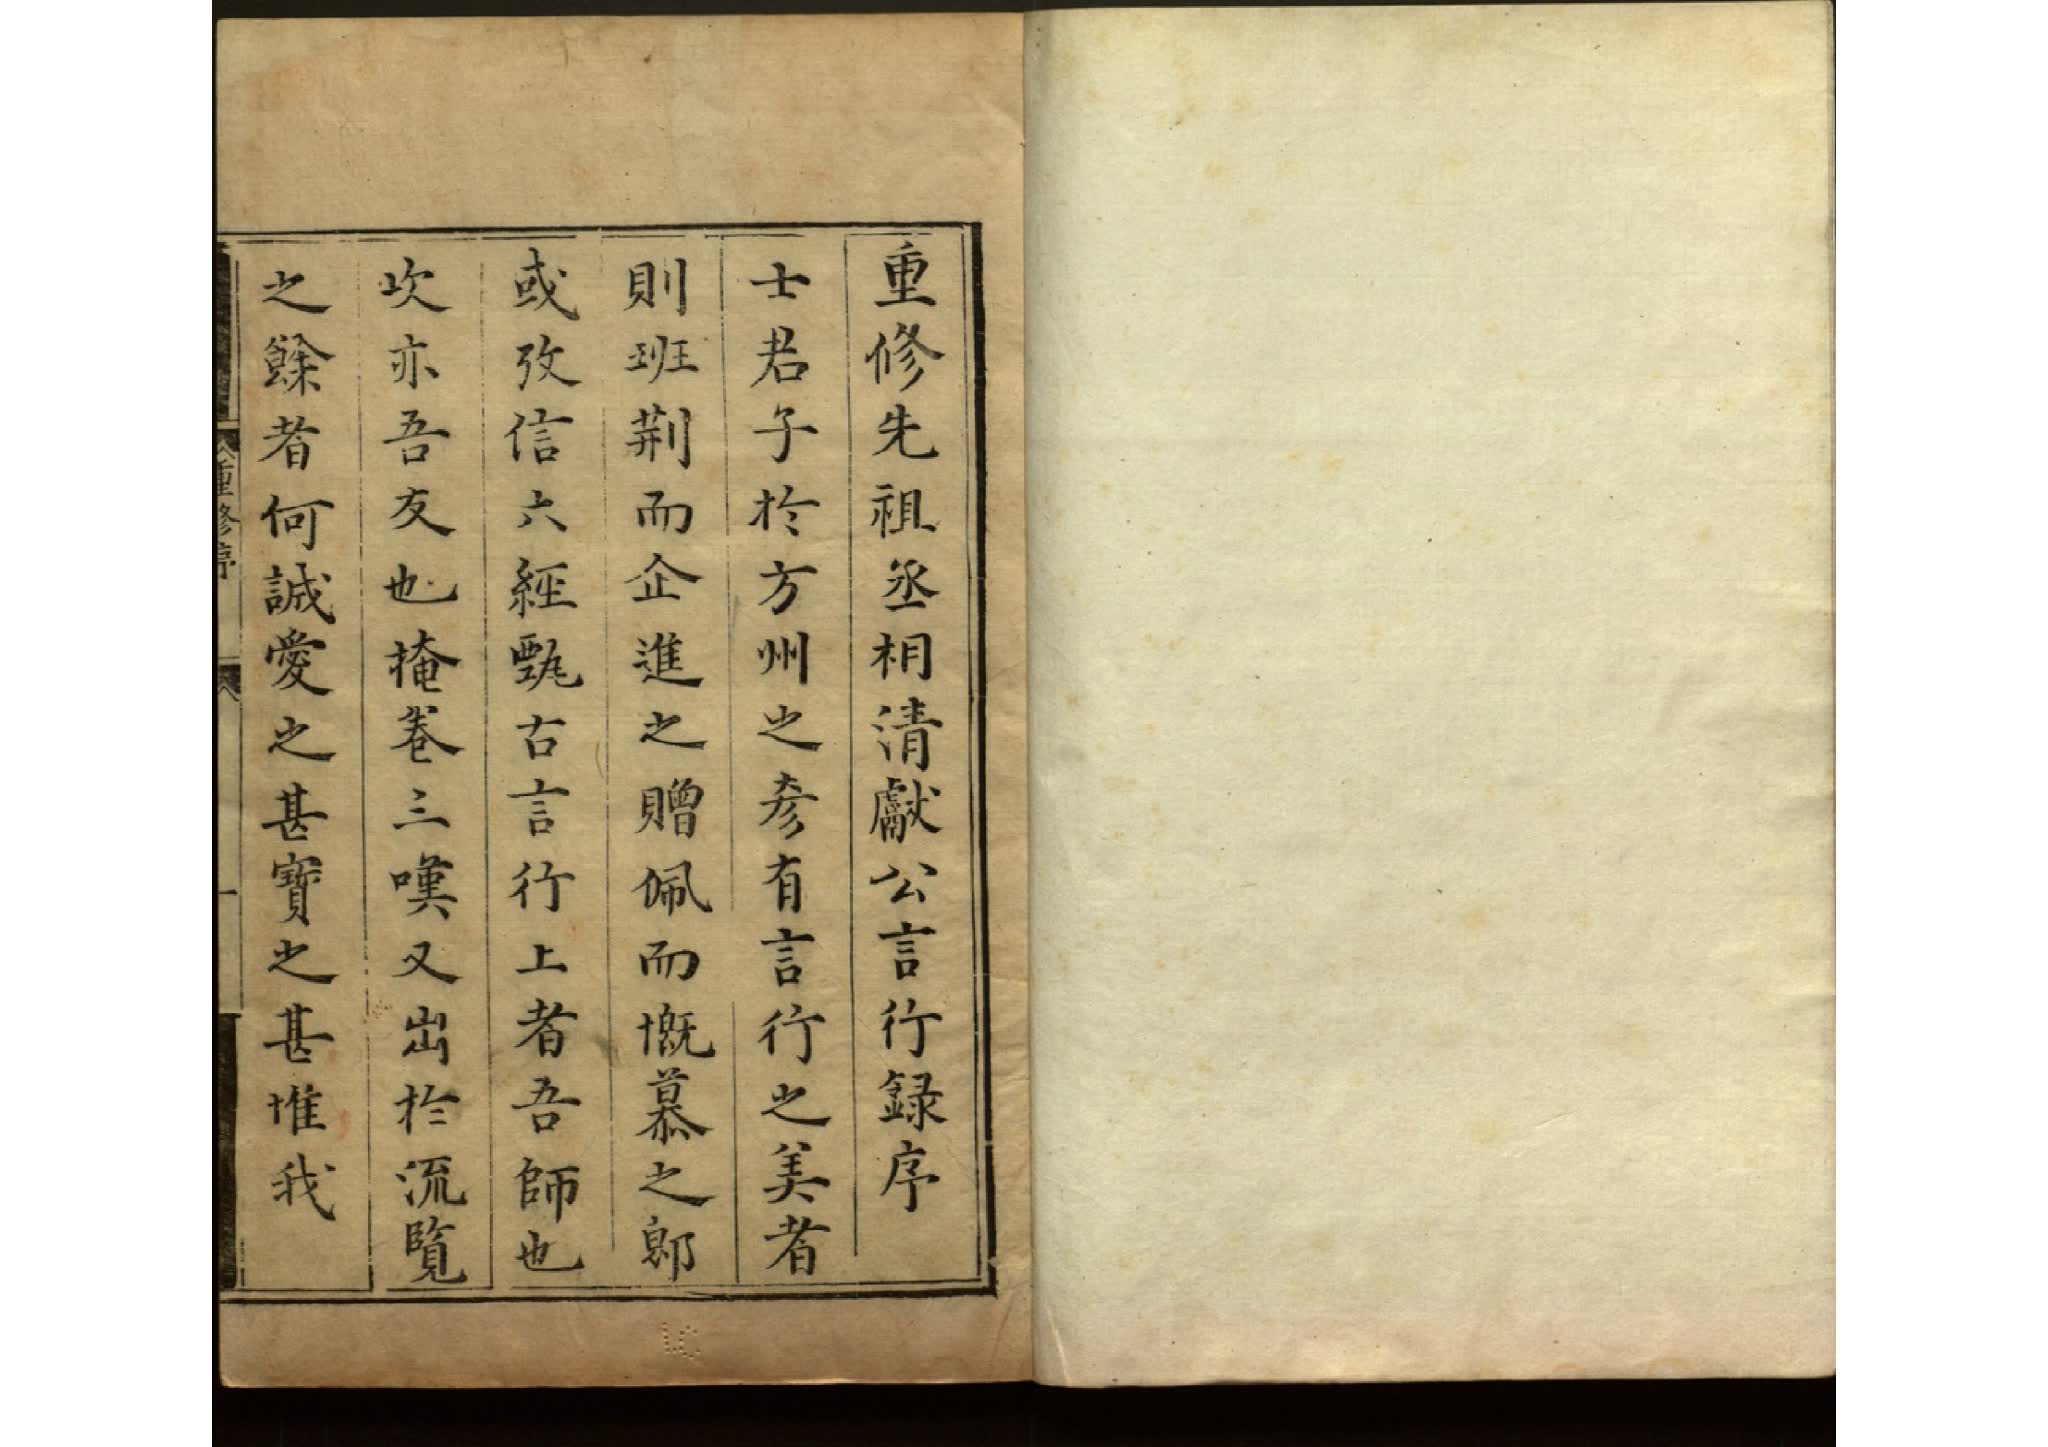 重修先祖丞相清獻公言行録序
士君子於方州之彥有言行之美者
則班荆而企進之贈佩而慨慕之郹
或攷信六經甄古言行上者吾師也
次亦吾友也掩卷三嘆又出於流覽
之餘者何誠愛之甚寶之甚惟我
重修序
一